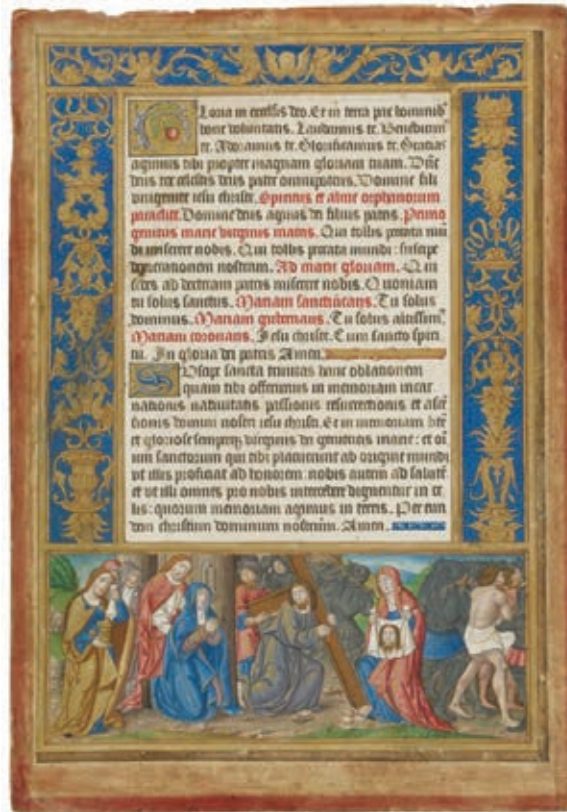 Gloria in excelsis deo. Et in terra pax hominib
bone voluntatis. Laudamus te. Benedicim
te. Adoramus te. Glorificamus te. Gratias
agimus tibi propter magnam gloriam tuam. Dñe
deus rex celestis deus pater omnipotens. Domine fili
unigenite iesu christe. Spiritus et alme orphanorum
paraclite. Domine deus agnus dei filius patris. Primo
genitus marie virginis matris. Qui tollis peccata mũ
di miserere nobis. Qui tollis peccata mundi: suscipe
deprecationem nostram. Ad marie gloriam. Qui
sedes ad dexteram patris miserere nobis. Quoniam
tu solus sanctus. Mariam sanctificans. Tu solus
dominus. Mariam gubernans. Tu solus altissim
Mariam coronans. Jesu christe. Cum sancto spiri
tu. In gloria dei patris Amen.
Suscipe sancta trinitas hanc oblationem
quam tibi offerimus in memoriam incar
nationis nativitatis passionis resurrectionis et ascẽ
tionis domini nostri iesu christi. Et in memoriam btẽ
et gloriose semper virginis dei genitricis marie: et oĩ
um sanctorum qui tibi placuerunt ab origine mundi
ut illis proficiat ad honorem: nobis autem ad salutẽ
et ut illi omnes pro nobis intercedere dignentur in ce
lis: quorum memoriam agimus in terris. Per eun
dem christum dominum nostrum. Amen.